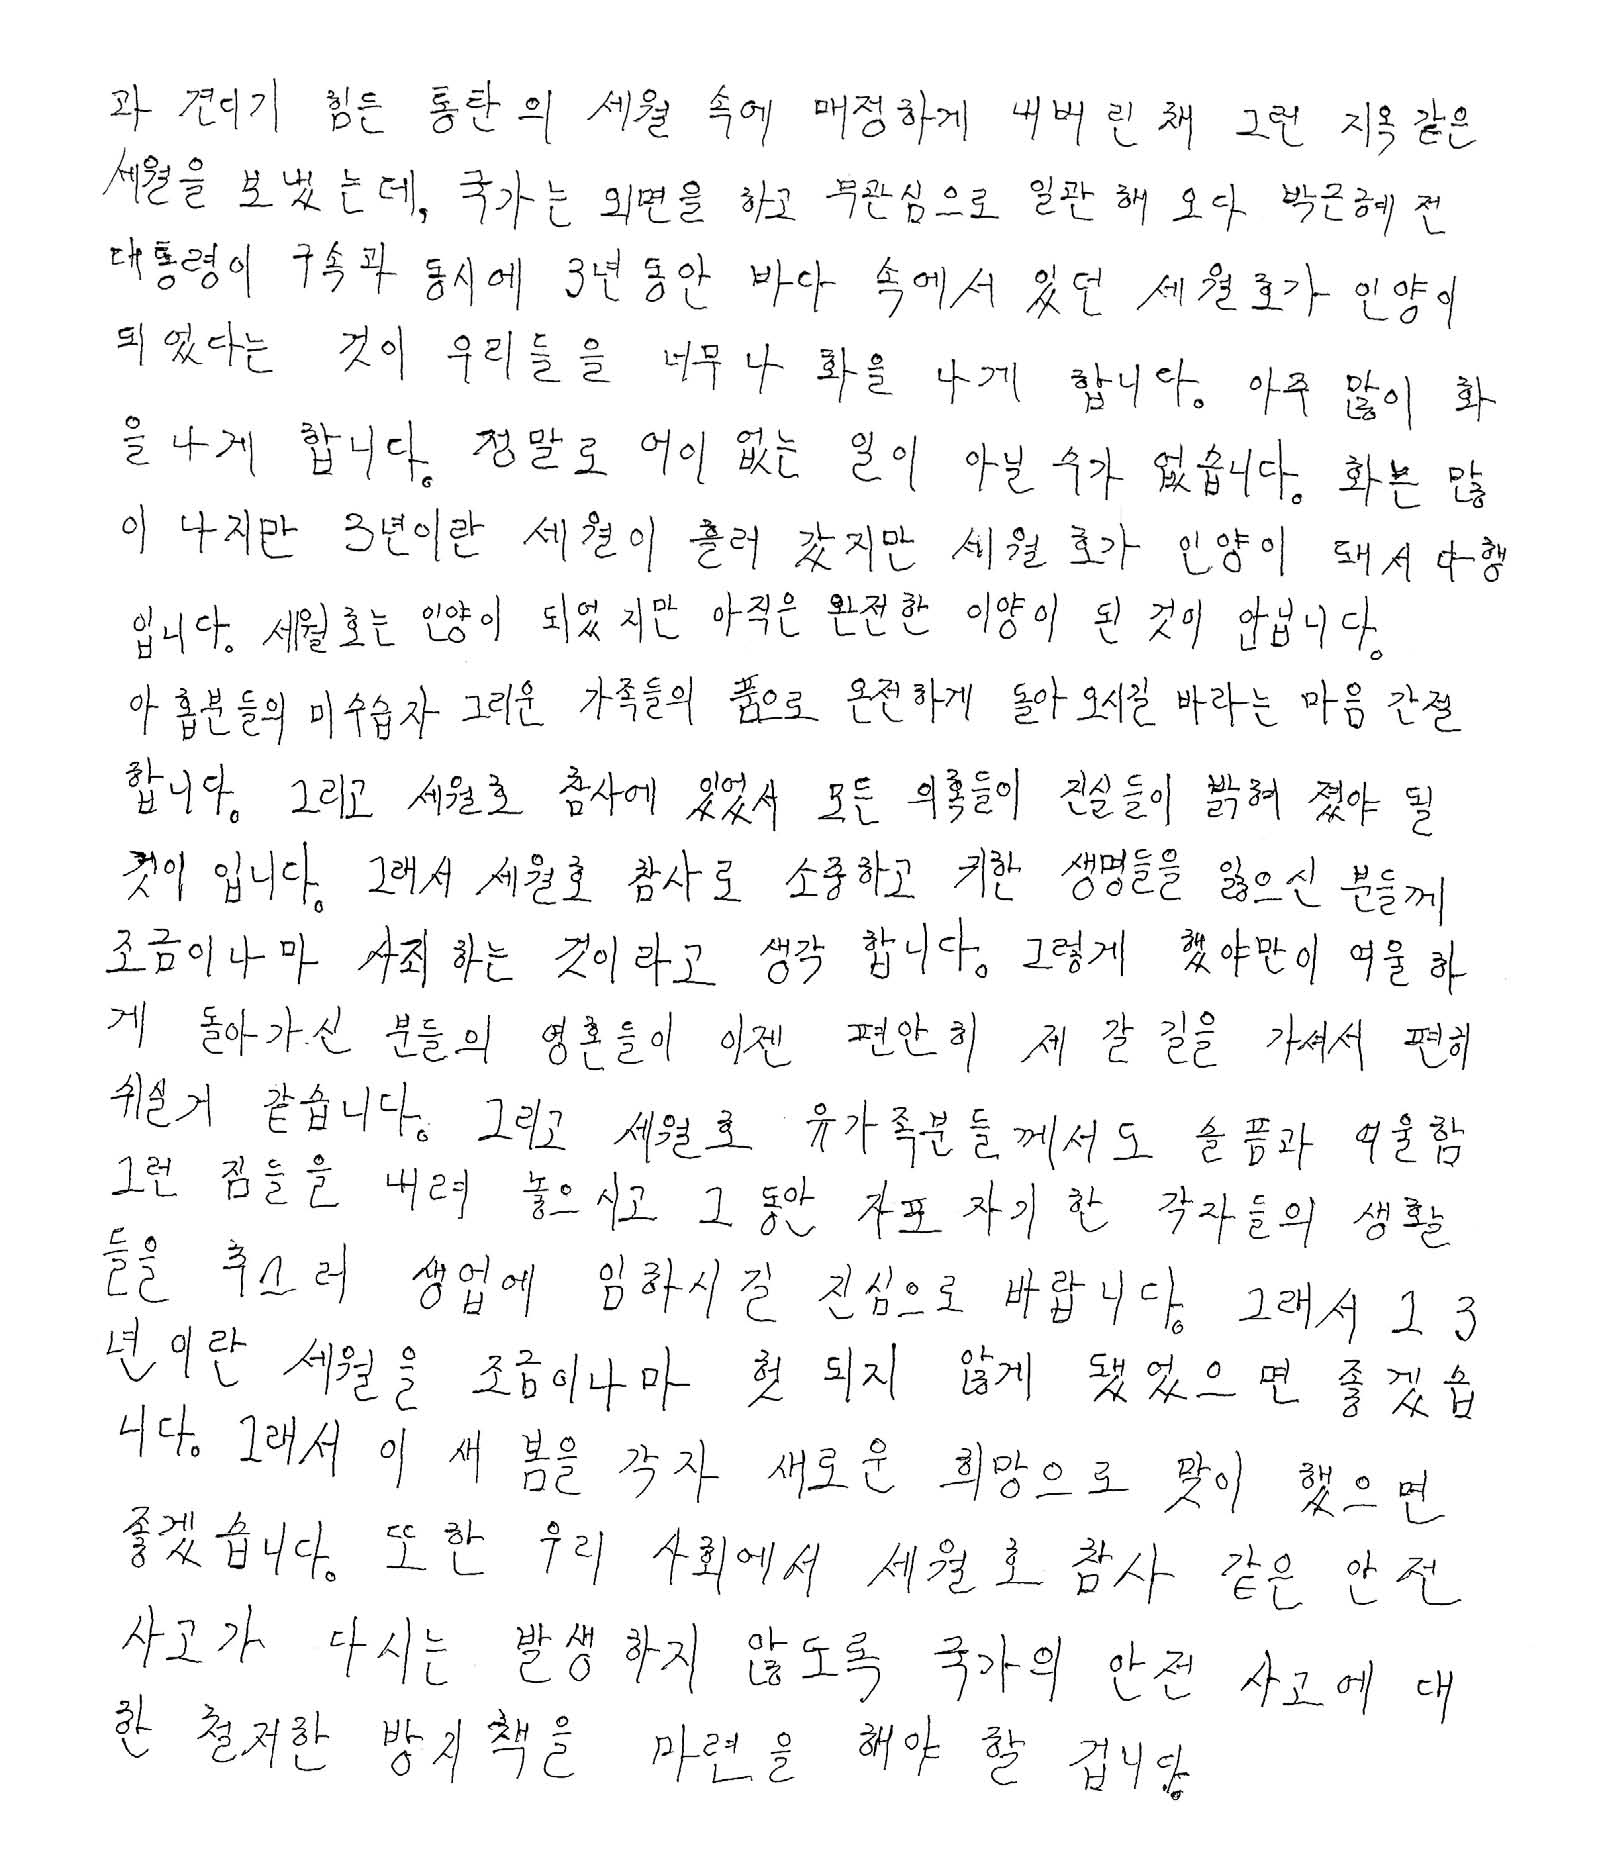 과 견디기 힘든 통탄의 세월 속에 매정하게 내버린채 그런 지옥같은
세월을 보냈는데, 국가는 외면을 하고 무관심으로 일관해 오다 박근혜 전
대통령이 구속과 동시에 3년동안 바다 속에서 있던 세월호가 인양이
되었다는 것이 우리들을 너무나 화을 나게 합니다. 아주 많이 화
을 나게 합니다. 정말로 어이없는 일이 아닐 수가 없습니다. 화는 많
이 나지만 3년이란 세월이 흘러 갔지만 세월호가 인양이 돼서 다행
입니다. 세월호는 인양이 되었지만 아직은 완전한 이양이 된 것이 안닙니다.
아홉분들의 미수습자 그리운 가족들의 품으로 온전하게 돌아 오시길 바라는 마음 간절
합니다. 그리고 세월호 참사에 있었서 모든 의혹들이 진실들이 밝혀 졌야 될
것이 입니다. 그래서 세월호 참사로 소중하고 키한 생명들을 잃으신 분들께
조금이나마 사죄하는 것이라고 생각 합니다. 그렇게 했야만이 억울하
게 돌아가신 분들의 영혼들이 이젠 편안히 제 갈 길을 가셔서 편히
쉬실거 같습니다. 그리고 세월호 유가족분들께서도 슬픔과 억울함
그런 짐들을 내려 놓으시고 그 동안 자포자기한 각자들의 생활
들을 추스러 생업에 임하시길 진심으로 바랍니다. 그래서 1 3
년이란 세월을 조금이나마 헛 되지 않게 됐었으면 좋겠습
니다. 그래서 이 새 봄을 각자 새로운 희망으로 맞이 했으면
좋겠습니다. 또한 우리 사회에서 세월호 참사 같은 안전
사고가 다시는 발생하지 않도록 국가의 안전 사고에 대
한 철저한 방지책을 마련을 해야 할 겁니다.